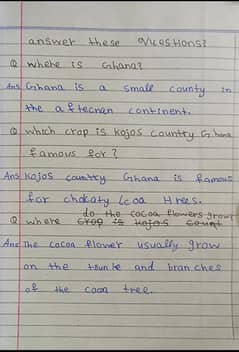 answer these Questions?
Q where is Ghana?
Ans Ghana is a small county in
the aftecnan continent.
Q which crop is kojos country Ghana
famous for?
Ans Kojos country Ghana is famous
for chokaty Hrees.
do the cocoa flowers grow
Q where crop is kojos count
Ans The cacoa flower usually grow
on the and branches
of the cocoa tree.